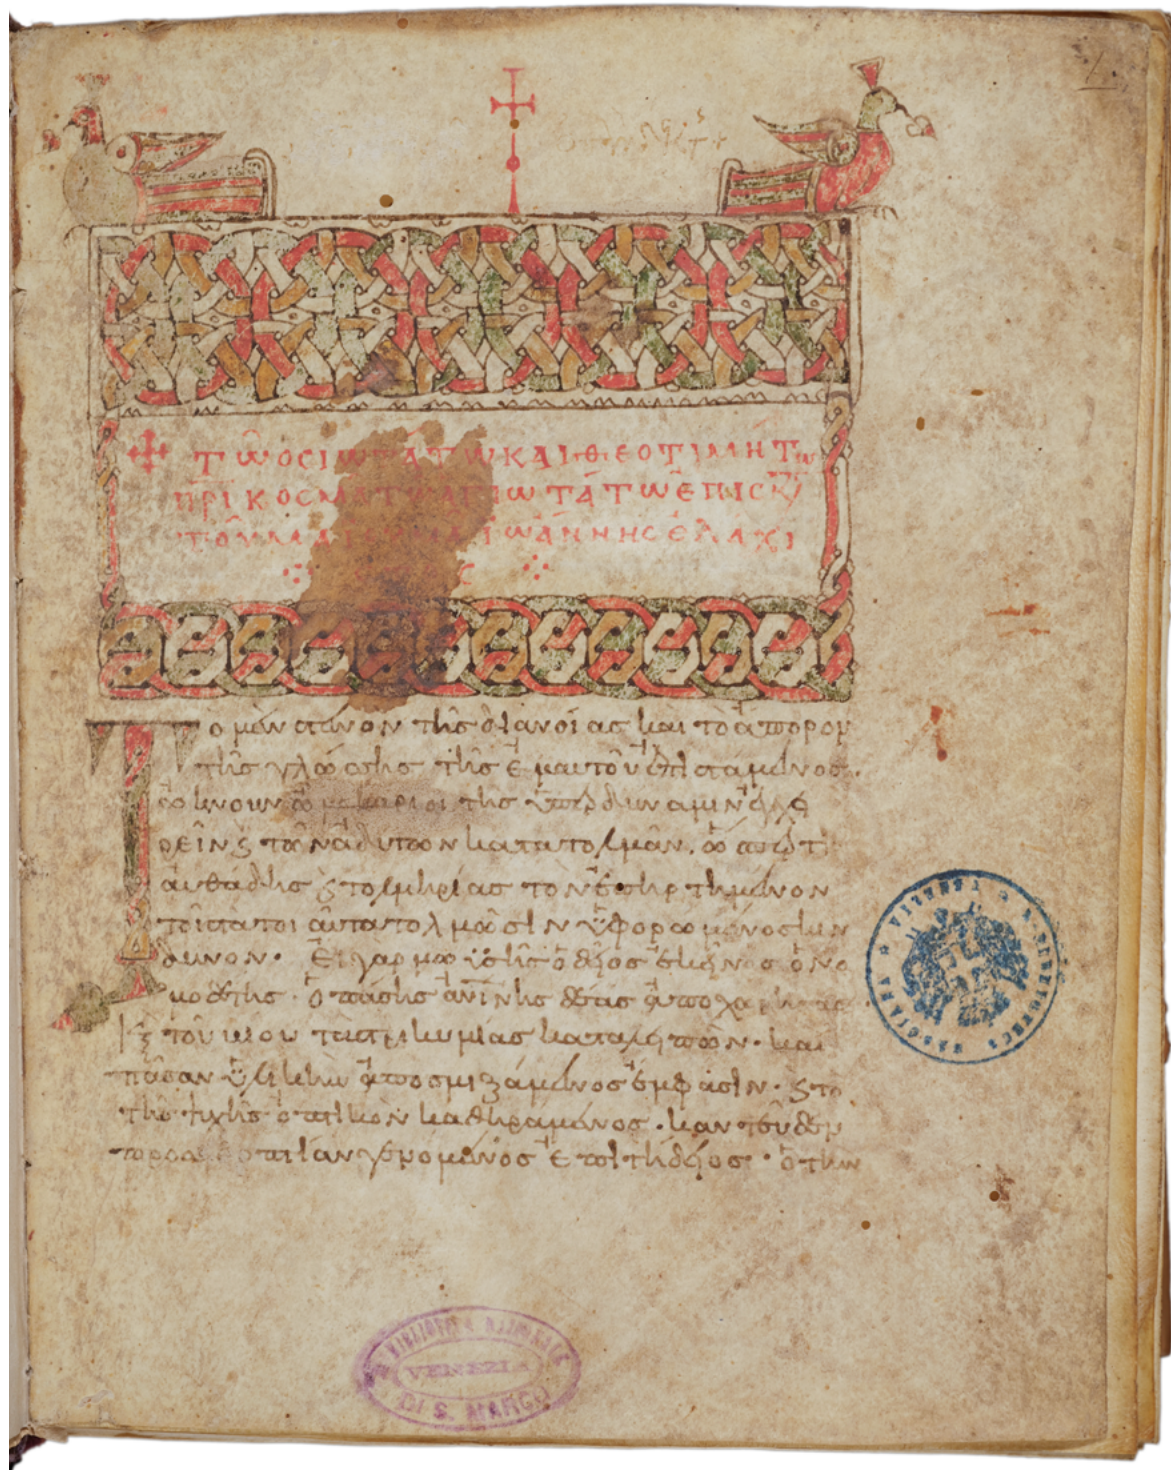 Τῶ ὉCΙΩΤΆΤΩ ΚΑΙ ΘΕΟΤΙΜΉΤω
ΠΡΙ ΚΟCΜΑ ΤΩ ἉΓΙΩΤΆΤΩ ἘΠΙCΚ
ΤΟΥ ΜΑΙΟΥΜΑ ἸΩΆΝΝΗC ἘΛΑΧΙ
C
Το μὲν στενὸν τῆς διανοίας και τὸ ἄπορον
τῆς γλώσσης τῆς ἐμαυτοῦ ἐπισταμένος.
ὤκνουν ὦ μακάριοι τῆς ὑπὲρ δύναμιν ἐγχει
ρεῖν ϗ τῶν ἀδύτων κατατολμᾶν. ὥσπερ τις
αὐθάδης ϗ τολμηρίας τὸν ἐπηρτημένον
τοῖς τα τοιαῦτα τολμῶσιν ὑφορώμενος κιν
δυνον. Εἰ γαρ μωϋσῆς ὁ θεῖος ἐκεῖνος ὁ νο
μοθέτης. ὁ πάσης ἀνίνης θέας ἀποχωρήσας
ϗ τοῦ βίου τὰς τρικυμίας καταλιπὼν. και
πᾶσαν ὑλικὴν ἀποσμιξάμενος ἔμφασιν. ϗ το
τῆς ψυχῆς ὀπτικὸν καθηραμένος. καντεῦθεν
προς θεοπτίαν γενομένος ἐπιτήδειος. ὁ την
BIBLIOTECA NAZIONALE
VENEZIA
DI S. MARCO